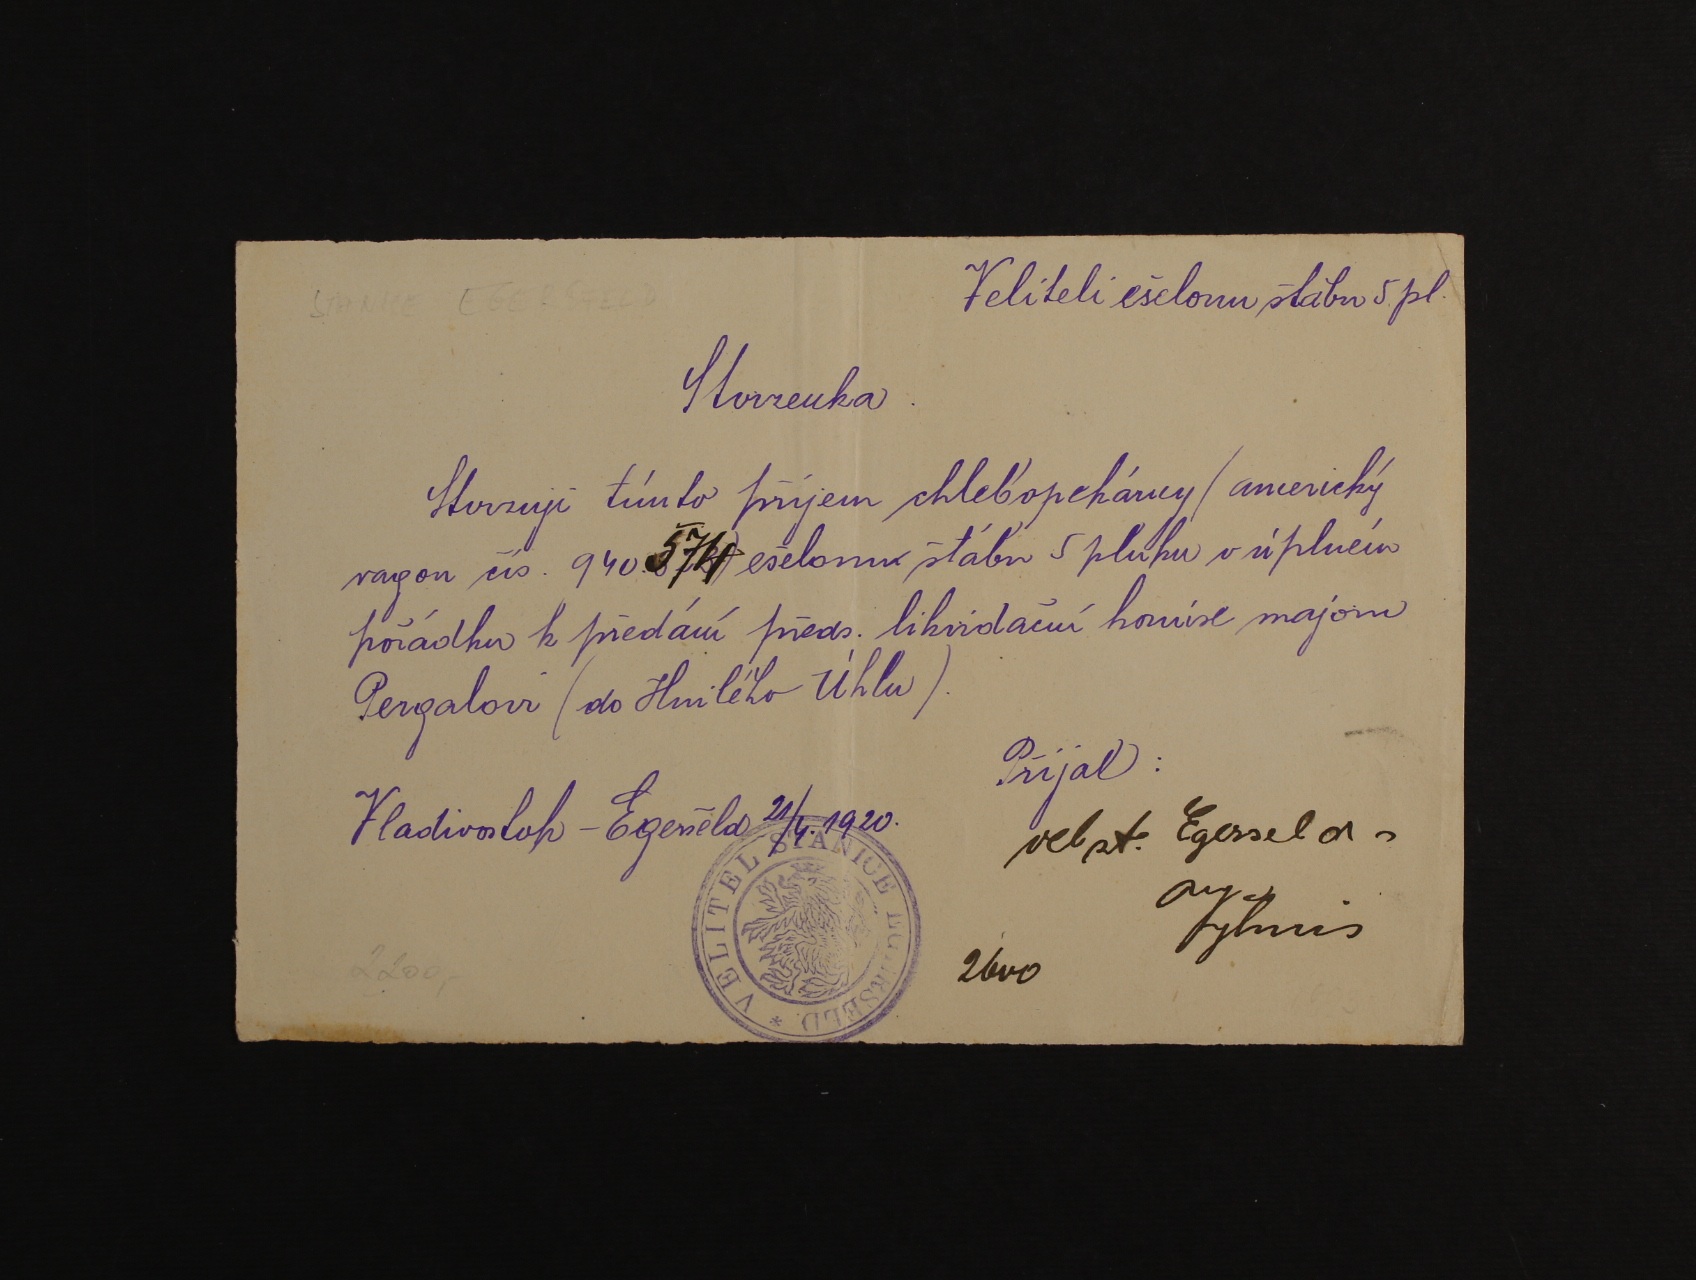 STANICE EGERŠELD
Veliteli ešelonu štábu 5 pl.
Stvrzenka.
Stvrzuji tímto příjem chlebopekárny (americký
vagon čís. 940.571) ešelonu štábu 5 pluku v úplném
pořádku k předání předs. likvidační komise majoru
Pergalovi (do Hnilého Úhlu).
Vladivostok - Egeršeld 21/4. 1920.
Přijal:
vel st. Egeršeld
VELITEL STANICE EGERŠELD *
2200,-